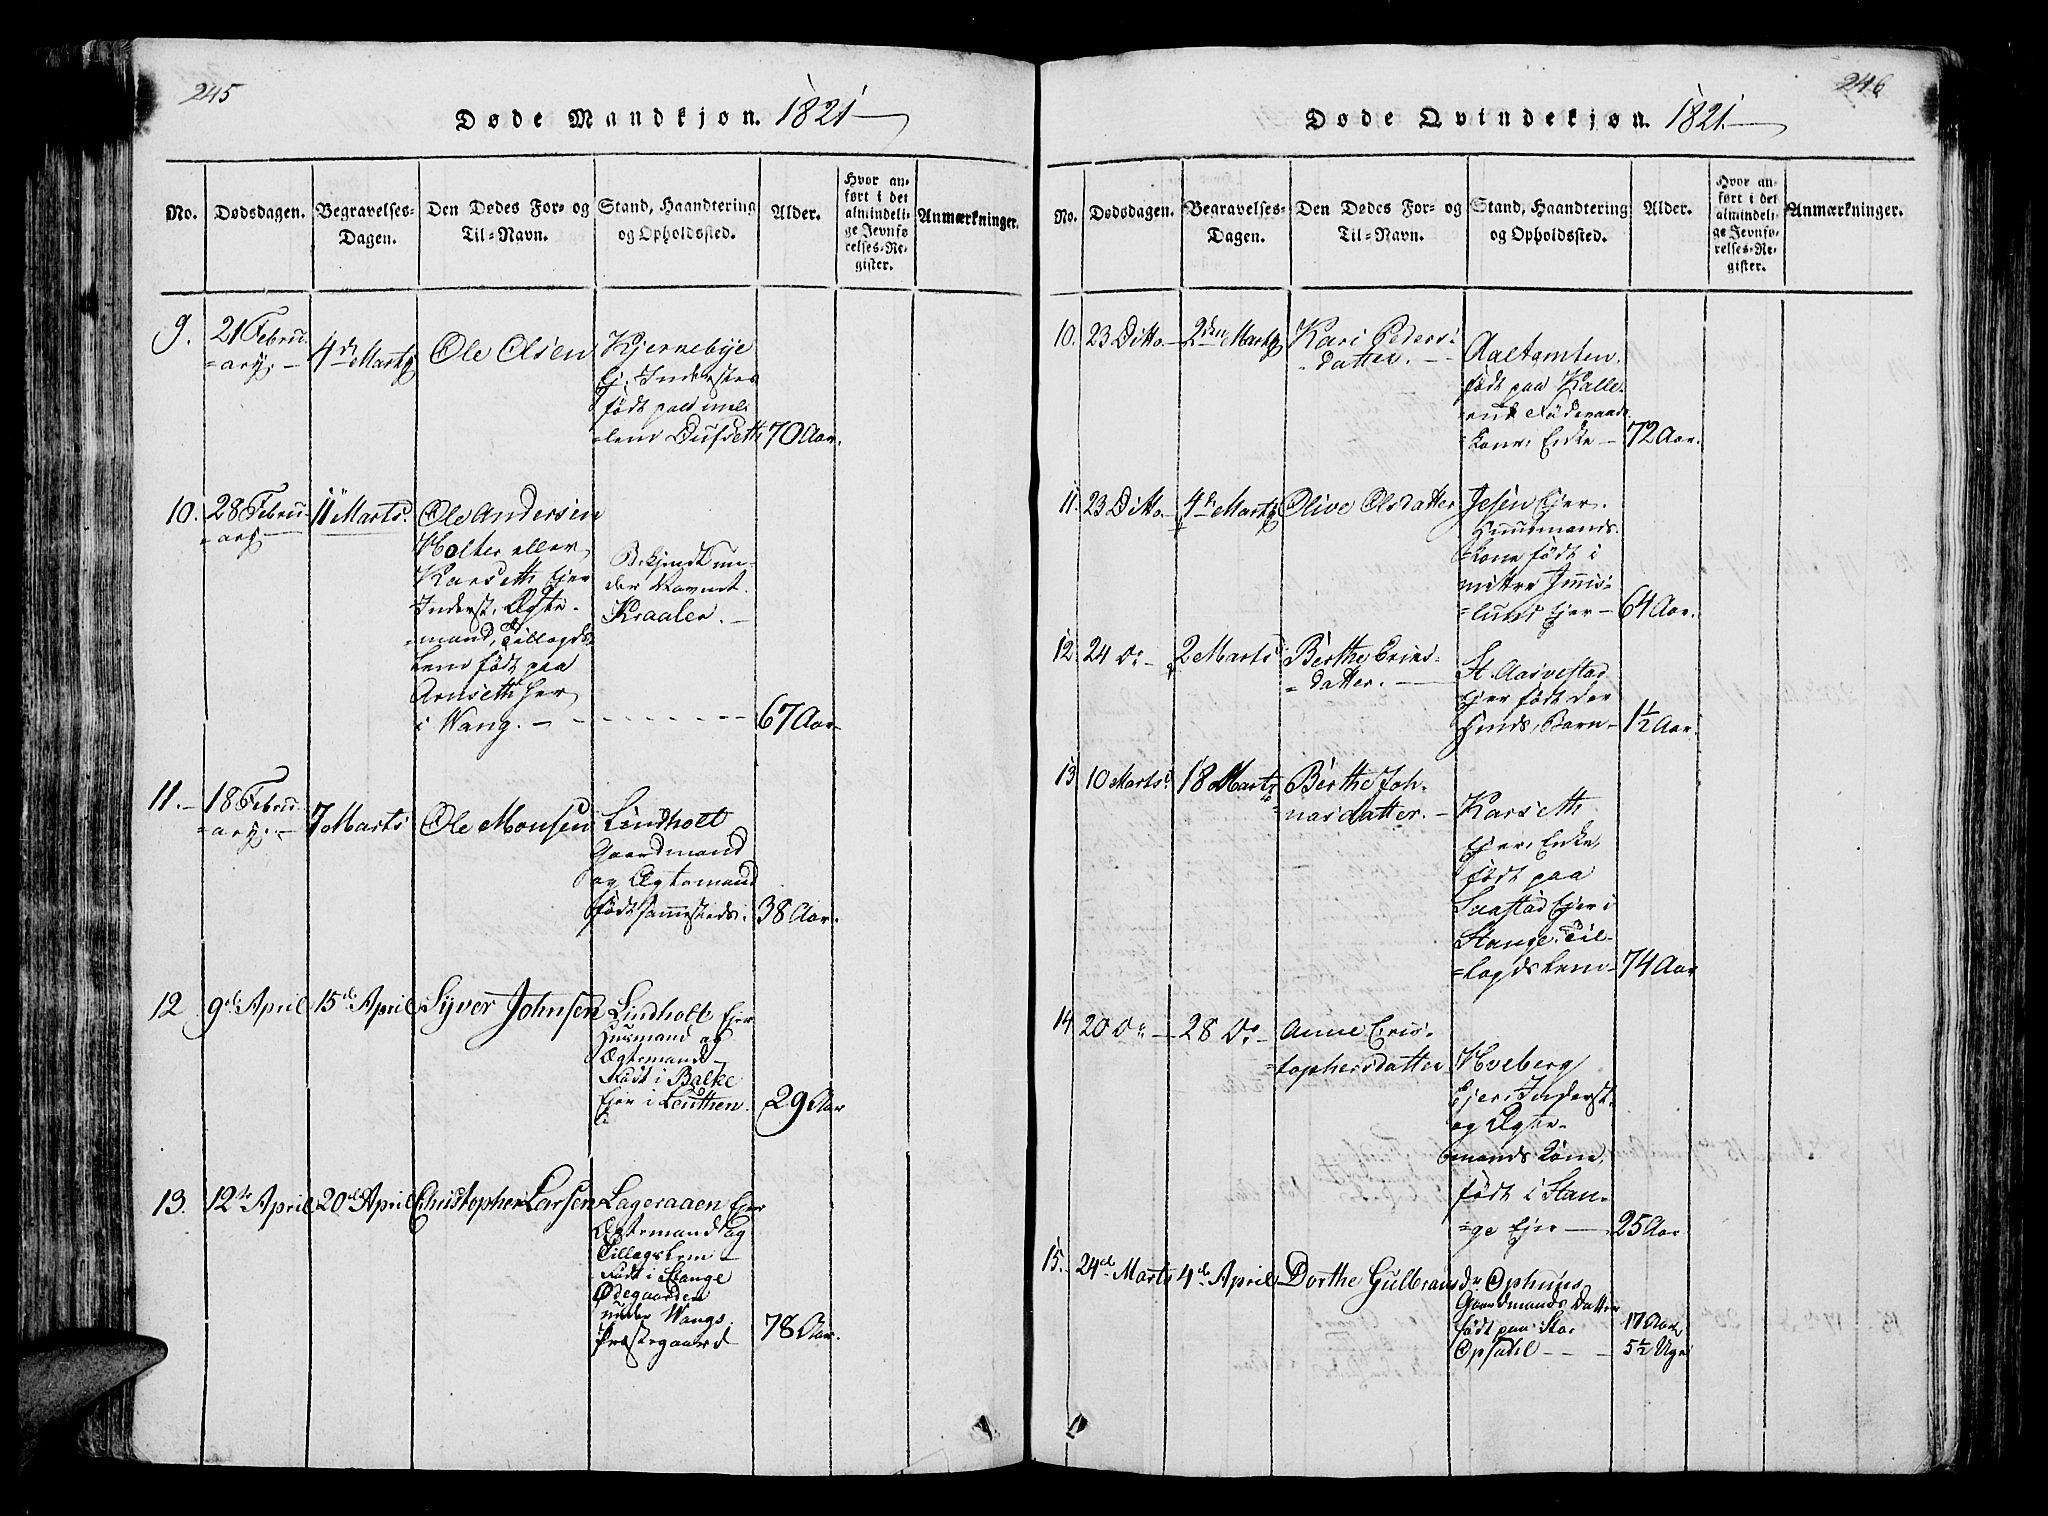 245
Døde Mandkjøn. 1821
No.
Dødsdagen.
Begravelses-
Dagen.
Den Dødes For- og
Til-Navn.
Stand, Haandtering
og Opholdssted.
Alder.
Hvor an-
ført i det
almindeli-
ge Jevnfø-
relses-Re-
gister.
Anmærkninger.
9.
21 Febru
=ary. —
4de Marts
Ole Olsen
Kjernebye
Ej. Inderstes
født paa
=lem
70 Aar.
10.
28 Febru
=ary —
11te Marts.
Ole Andersen
Holter eller
Karseth Ejer
Inderst, Ægte-
=mand, Tillagds
Lem født paa
Arnseth her
i Wang. —
Bekjendt un-
der Navnet
Kraalen. —
67 Aar
11. —
18 Febru
=ary. —
7 Marts
Ole Monsen
Lindholt
Gaardmand
og Ægtemand
født sammesteds.
38 Aar.
12
9de April
15de April
Syver Johnsen
Lindholt Ejer
Husmand og
Ægtemand —
Født i Balke
Ejer i Leuthen.
29 Aar
13.
12te April
20de April
Christopher Larsen
Lageraaen Ejer
Ægtemand og
Tillagslem —
Født i Stange
Ødegaarden
under Wangs
Præstegaard
78 Aar.
246
Døde Qvindekjøn. 1821.
No.
Dødsdagen.
Begravelses-
Dagen.
Den Dødes For- og
Til-Navn.
Stand, Haandtering
og Opholdssted.
Alder.
Hvor an-
ført i det
almindeli-
ge Jevnfø-
relses-Re-
gister.
Anmærkninger.
10.
23 Ditto
2den Marts
Kari Peders-
=datter. —
Aaltomten.
født paa Kalle-
=rud Føderaads
=kone, Enke —
72 Aar.
11.
23 Ditto
4de Marts
Olive Olsdatter
Jesen Ejer.
Huusmands
=kone født i
=lund Ejer —
64 Aar.
12.
24 Do —
2 Marts
Berthe Erics-
=datter. —
St. Aasvestad
Ejer født der
Barn —
1½ Aar.
13
10 Marts
18 Marts
Berthe Joh-
=nasdatter. —
Karseth
Ejer, Enke,
født paa
Saastad Ejer i
Stange, Til-
=lagds Lem —
74 Aar
14.
20 Do —
28 Do —
Anne Cris-
=tophersdatter
Hveberg
Ejer, Inderst
og Ægte-
=mands Kone,
født i Stan-
=ge Ejer —
25 Aar
15. —
24de Marts
4de April
Dorthe Gulbrans dr
Ophuus
Gaardmands Datter
født paa Stor
Opsahl — — —
17 Aar
5½ Uge